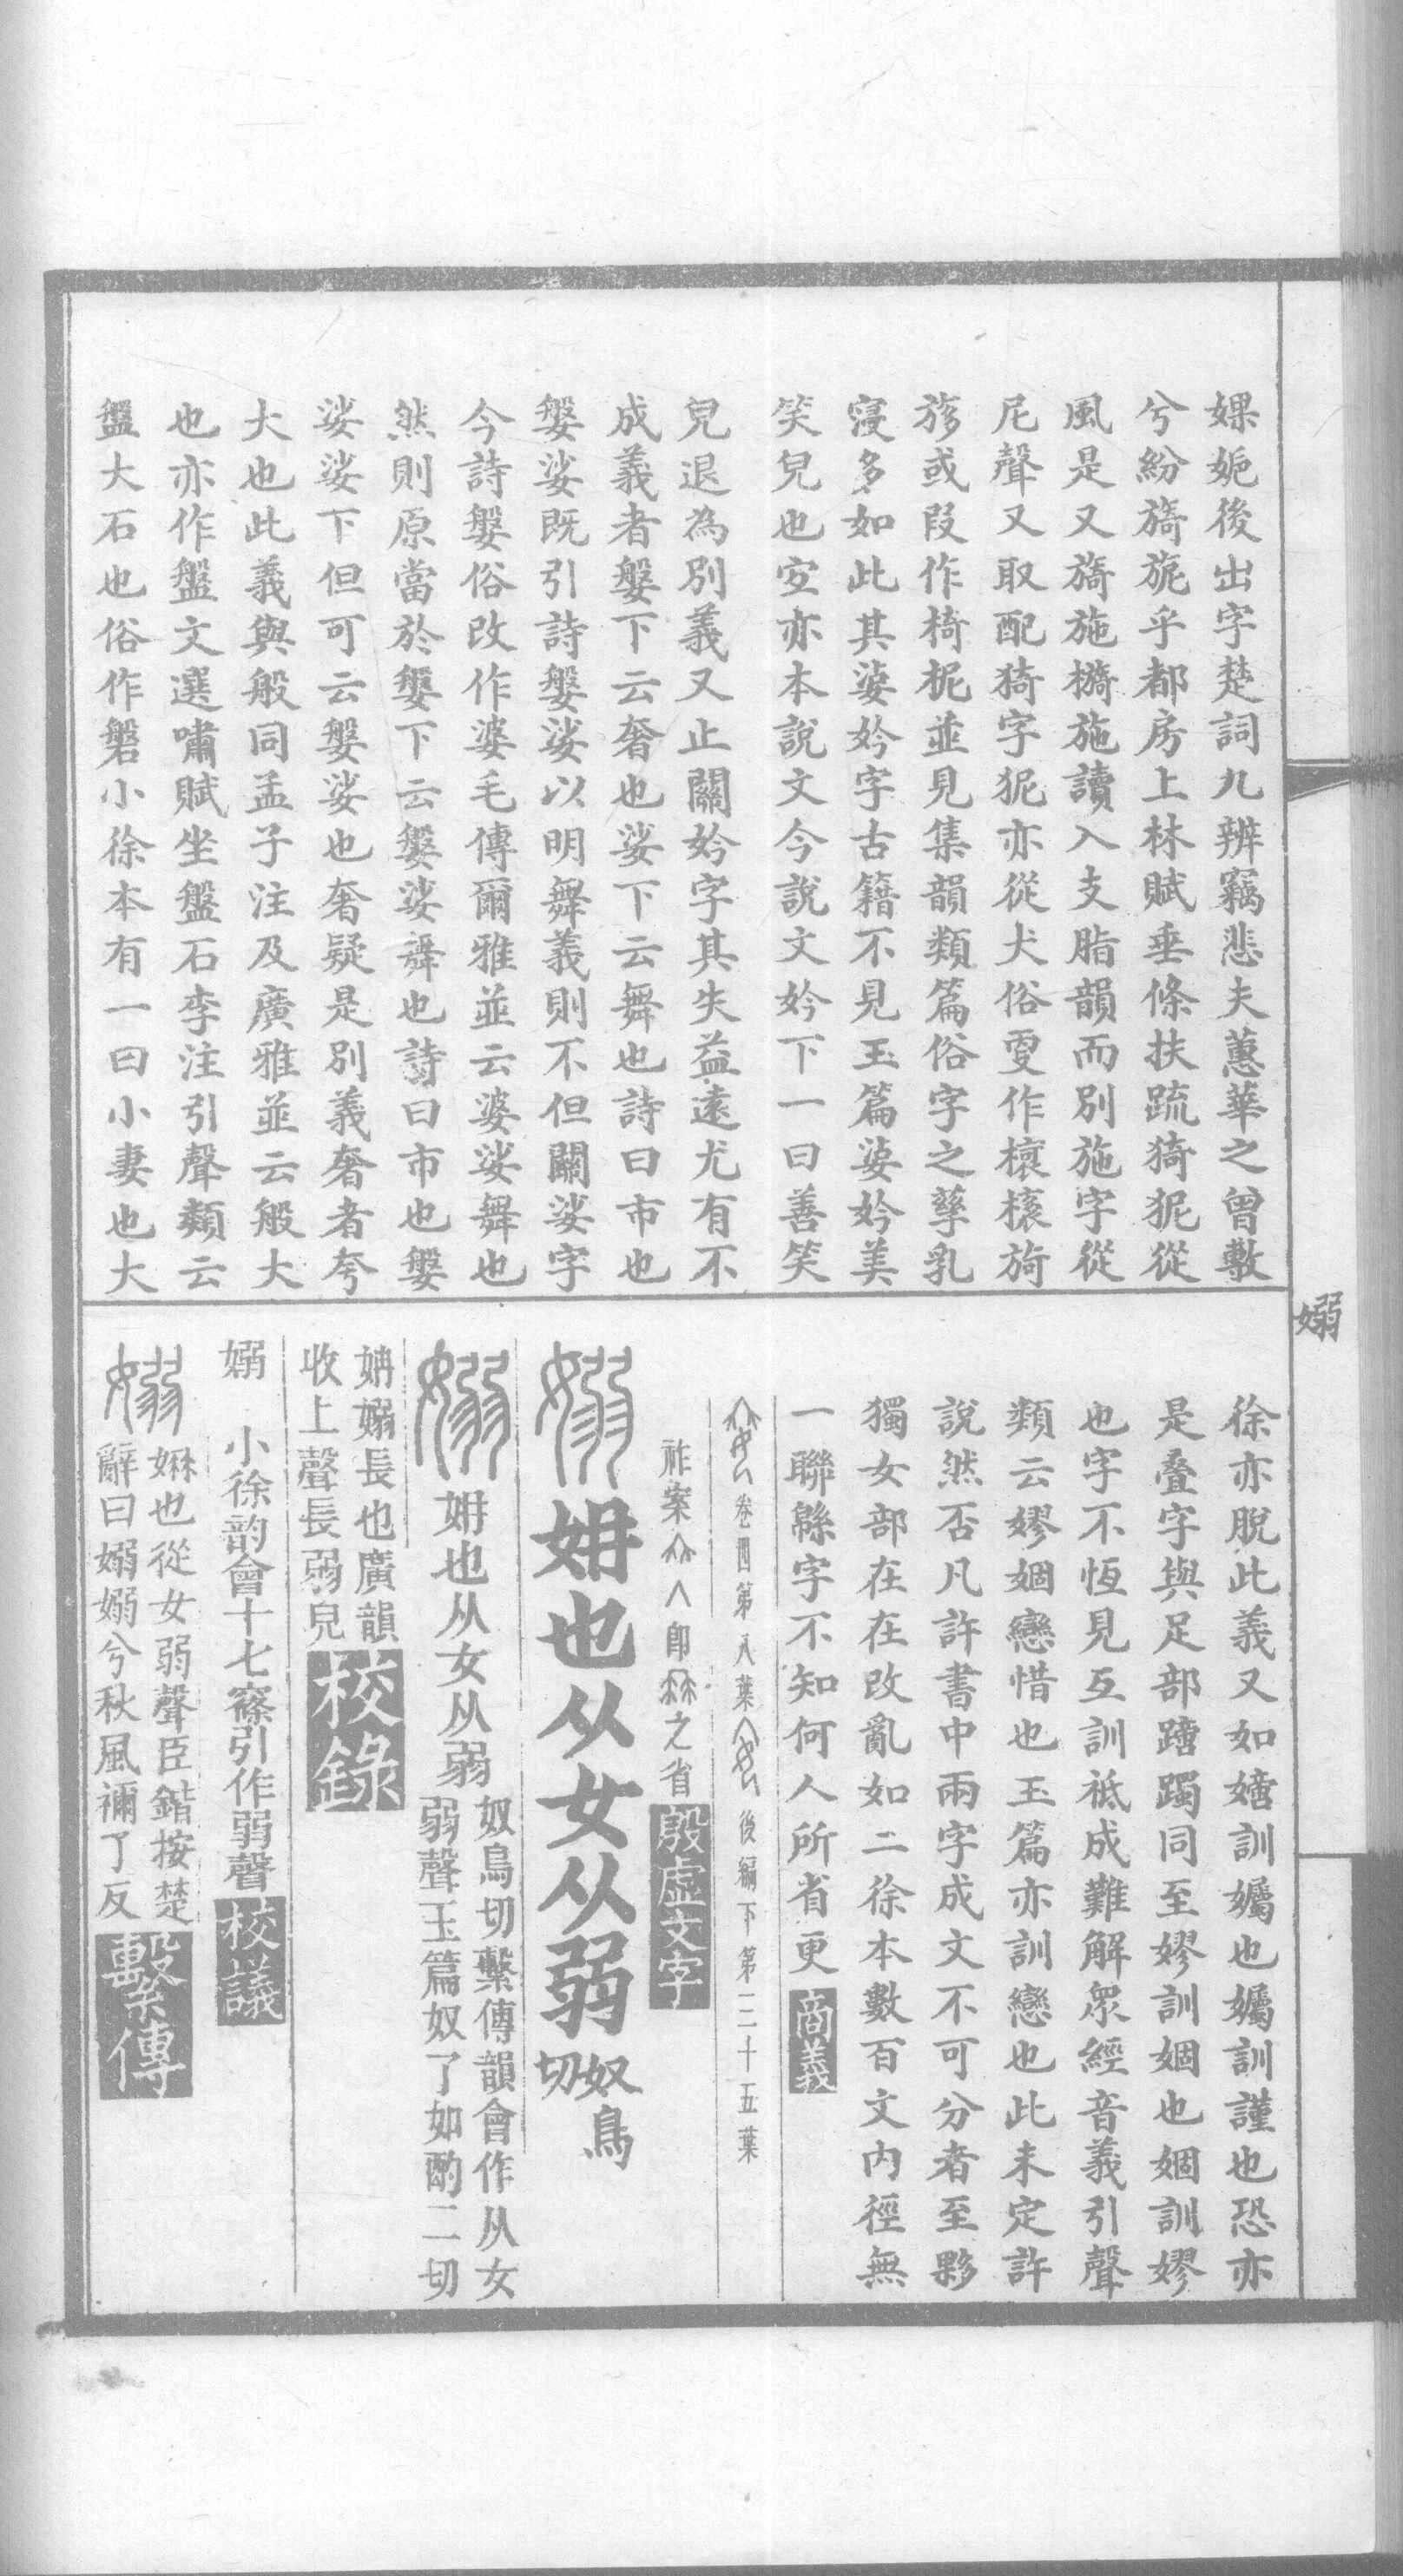 婐妮後出字楚詞九辨竊悲夫蕙華之曾敷
兮紛旖旎乎都房上林賦垂條扶疏猗狔從
風是又旖施檹施讀入支脂韻而別施字從
尼聲又取配猗字狔亦從犬俗更作檂檂旖
旖或叚作椅柅並見集韻類篇俗字之孳乳
寖多如此其婆妗字古籍不見玉篇婆妗美
笑皃也安亦本說文今說文妗下一曰善笑
皃退為別義又止關妗字其失益遠尤有不
成義者媻下云奢也娑下云舞也詩曰市也
媻娑既引詩媻娑以明舞義則不但關娑字
今詩媻俗改作婆毛傳爾雅並云婆娑舞也
然則原當於媻下云媻娑舞也詩曰市也媻
娑娑下但可云媻娑也奢疑是別義奢者夸
大也此義與般同孟子注及廣雅並云般大
也亦作盤文選嘯賦坐盤石李注引聲類云
盤大石也俗作磐小徐本有一曰小妻也大
徐亦脫此義又如嫧訓孎也孎訓謹也恐亦
是疊字與足部蹢躅同至嫪訓婟也婟訓嫪
也字不恆見互訓祗成難解眾經音義引聲
類云嫪婟戀惜也玉篇亦訓戀也此未定許
說然否凡許書中兩字成文不可分者至夥
獨女部在在改亂如二徐本數百文內徑無
一聯緜字不知何人所省更 商義
卷四第八葉 後編下第二十五葉
祚案 即 之省 殷虛文字
嫋 姌也从女从弱 奴鳥切
嫋 姌也从女从弱 奴鳥切繫傳韻會作从女
弱聲玉篇奴了如酌二切
姌嫋長也廣韻
收上聲長弱皃 校錄
嫋 小徐韵會十七篠引作弱聲 校議
嫋 姌也從女弱聲臣鍇按楚
辭曰嫋嫋兮秋風禰了反 繫傳
嫋